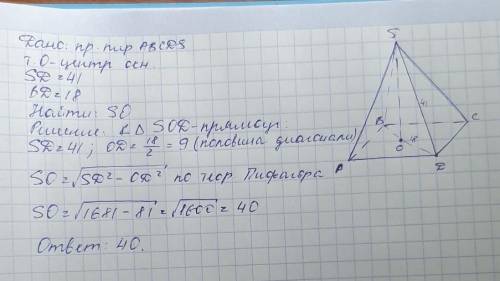 Дано: пр. пир ABCDS
т. O-центр осн.
SD=41
BD=18
Найти: SO
Решение: △SOD-прямоуг.
SD=41; OD=18/2=9 (половина диагонали)
SO=√SD²-OD² по теор. Пифагора
SO=√1681-81=√1600=40
Ответ: 40.
S
41
B
C
O
18
A
D